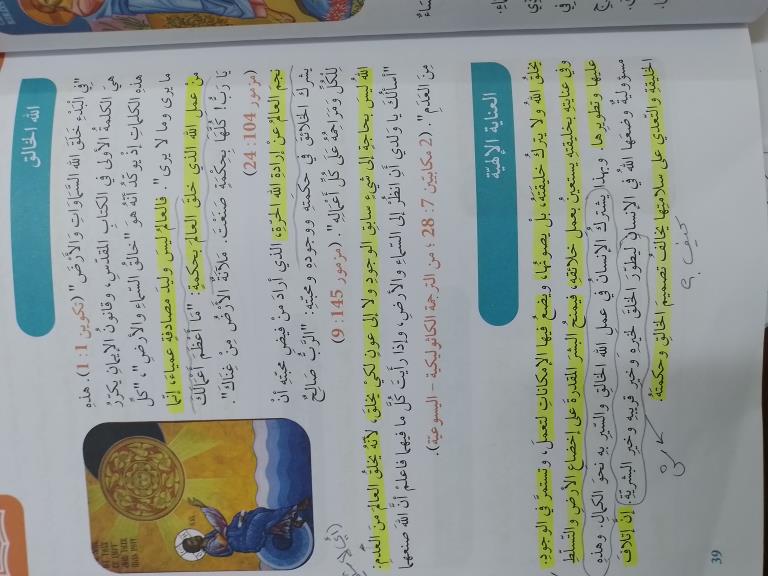 الله الخالق
"فِي الْبَدْءِ خَلَقَ اللهُ السَّمَاوَاتِ وَالأَرْضَ" (تكوين 1 : 1). هذه
هِيَ الكلمةُ الأولى في الكتابِ المقدّسِ، وقانونُ الإيمانِ يكرّرُ
هذهِ الكلماتِ إذ يؤكّدُ أنَّهُ هو "خالقُ السماءِ والأرضِ"، "كلِّ
ما يرى وما لا يرى". فالعالمُ ليسَ وليدَ مصادفةٍ عمياءَ، إنّما
مِنْ عملِ اللهِ الذي خلقَ العالمَ بحكمةٍ: "مَا أَعْظَمَ أَعْمَالَكَ
يَا رَبُّ! كُلَّهَا بِحِكْمَةٍ صَنَعْتَ. مَلآنَةٌ الأَرْضُ مِنْ غِنَاكَ".
(مزمور 104: 24)
نجمَ العالمُ عن إرادةِ اللهِ الحرّةِ، الذي أرادَ من فيضِ محبّتِه أنْ
يشركَ الخلائقَ في حكمتِه ووجودِه ومحبّتِه: "الرَّبُّ صَالِحٌ
لِلْكُلِّ وَمَرَاحِمُهُ عَلَى كُلِّ أَعْمَالِهِ". (مزمور 145: 9)
اللهُ ليسَ بحاجةٍ إلى شيءٍ سابقِ الوجودِ ولا إلى عونٍ لكيْ يخلقَ، لأنَّهُ يخلقُ العالمَ منَ العدمِ:
"أسألُكَ يا ولدي أنْ انظُرْ إلى السماءِ والأرضِ، وإذا رأيتَ كُلَّ ما فيهما فاعلمْ أنَّ اللهَ صنعَهما
مِنَ العَدَمِ". (2 مكابيين 7: 28 ؛ من الترجمة الكاثوليكية - اليسوعيّة).
العناية الإلهيّة
يخلقُ اللهُ ولا يتركُ خليقتَهُ، بلْ يصونُها، ويضعُ فيها الإمكاناتِ لتعملَ، وتستمرَّ في الوجودِ.
وفي عنايتِهِ بخليقتِهِ يستعينُ بعملِ خلائقِهِ، فيمنحُ البشرَ المقدرةَ على إخضاعِ الأرضِ والتسلّطِ
عليها وتطويرِها. وبهذا يشتركُ الإنسانُ في عملِ اللهِ الخالقِ والسيرِ بهِ نحوَ الكمالِ. وهذه
مسؤوليةٌ وضعَها اللهُ في الإنسانِ ليطوّرَ الخلقَ لخيرِهِ وخيرِ قريبِهِ وخيرِ البشريّةِ. إنَّ إتلافَ
الخليقةِ والتعدّي على سلامتِها يخالفُ تصميمَ الخالقِ وحكمتَهُ.
كيف؟
39